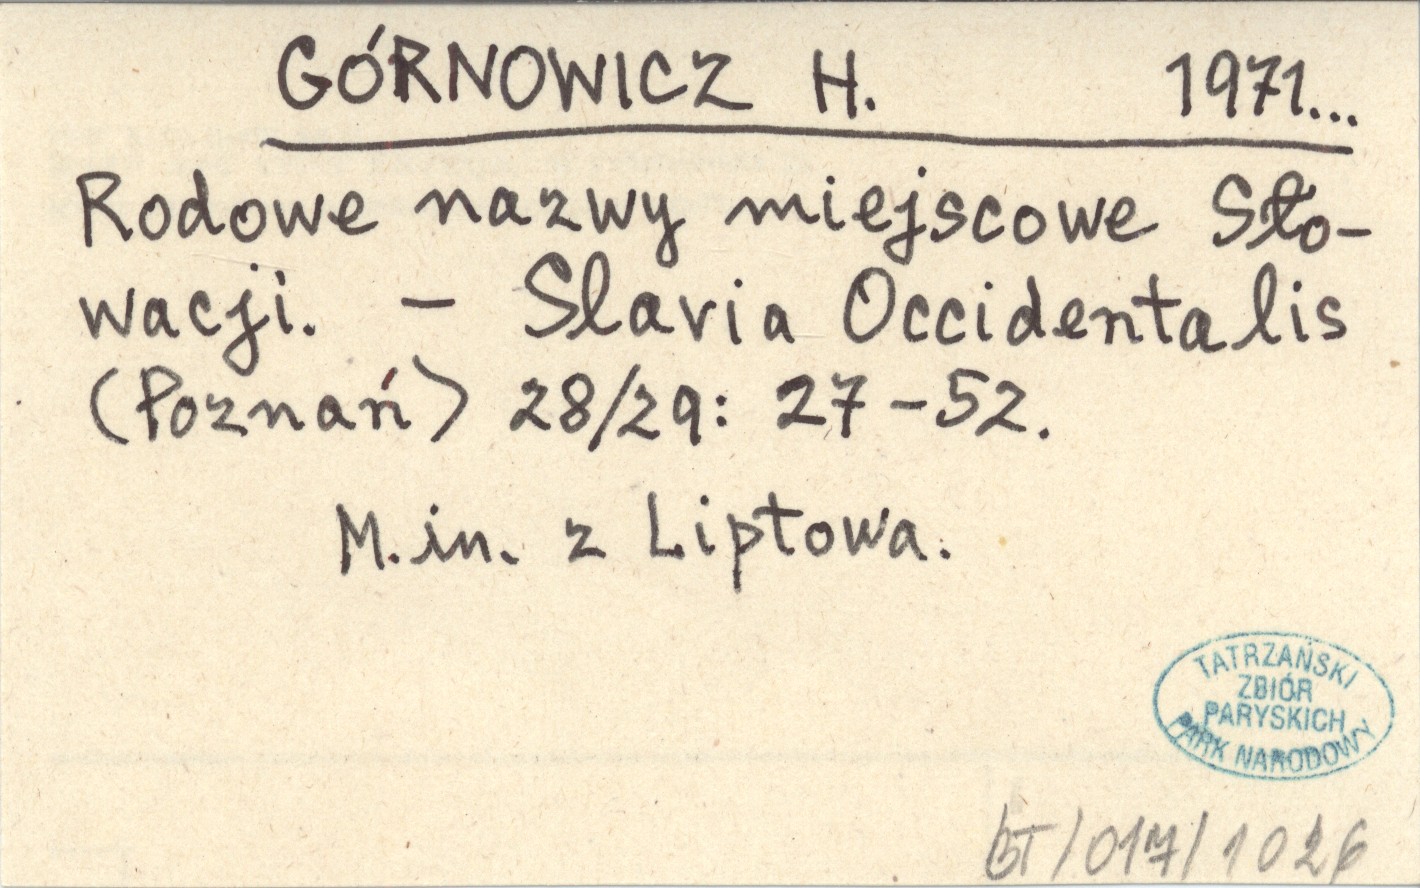 GÓRNOWICZ H. 1971...
Rodowe nazwy miejscowe Sło-
wacji. - Slavia Occidentalis
(Poznań) 28/29: 27-52.
M.in. z Liptowa.
TATRZAŃSKI
ZBIÓR
PARYSKICH
PARK NARODOWY
BT/017/1026